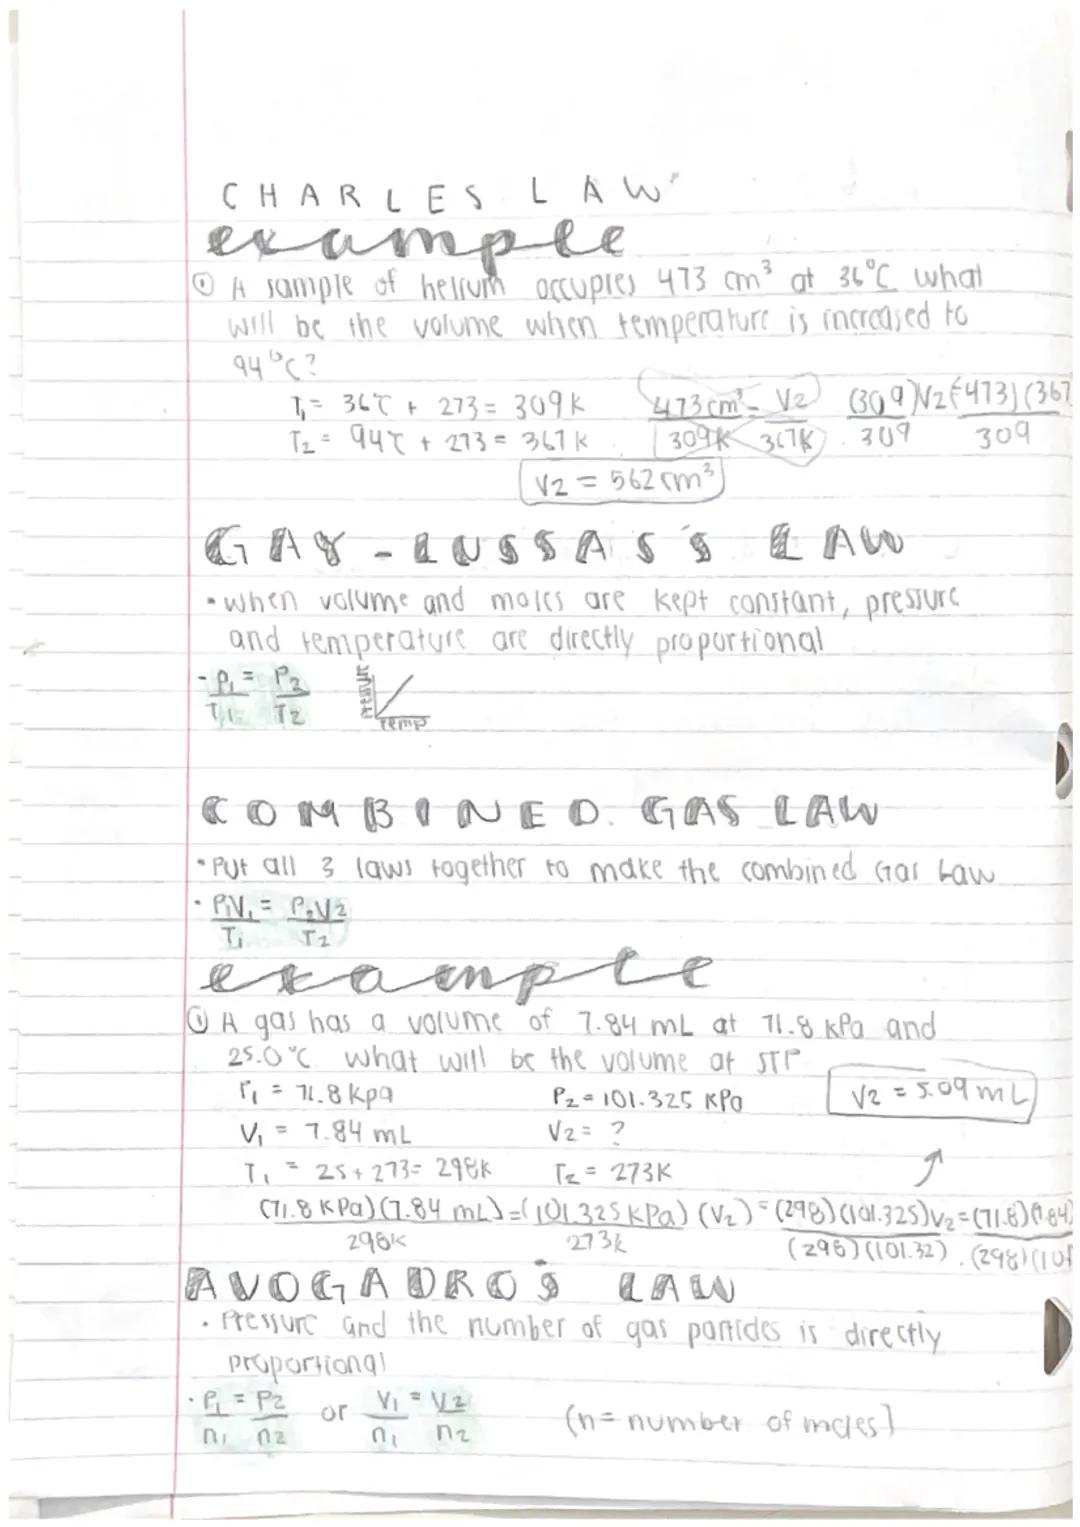 CHARLES LAW
example
① A sample of helium occupies 473 cm³ at 36°C what
will be the volume when temperature is increased to
94°C?
T₁ = 36℃ + 273 = 309K 473cm³ = V2 (309)V2=(473)(367
T₂ = 94℃ + 273 = 367K 309K 367K 309 309
V2 = 562cm³
GAY-LUSSAS'S LAW
• when volume and moles are kept constant, pressure
and temperature are directly proportional
- P₁ = P₂
T₁ T2
temp
COMBINED GAS LAW
• Put all 3 laws together to make the combined Gas Law
• P₁V₁ = P₂V2
T₁ T2
example
① A gas has a volume of 7.84 mL at 71.8 kPa and
25.0℃. what will be the volume at STP
P₁ = 71.8 kpa P2 = 101.325 KPa V2 = 5.09 mL
V₁ = 7.84 mL V2 = ?
T₁ = 25 + 273 = 298K T2 = 273K
(71.8 KPa)(7.84 mL) = (101.325 KPa) (V₂) = (298)(101.325)V2 = (71.8)(7.84)
298K 273K (298)(101.32) . (298)(101
AVOGADRO'S LAW
• Pressure and the number of gas particles is directly
proportional
• P₁ = P2 or V₁ = V2
n₁ n2 n₁ n2 (n = number of moles)